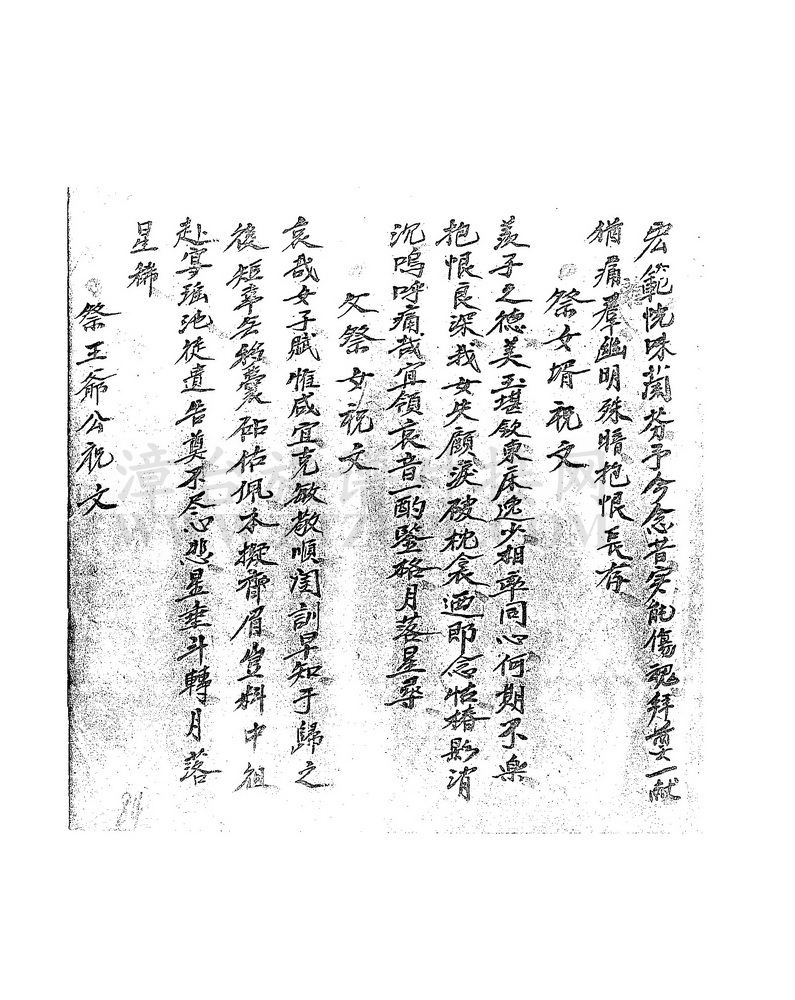 宏範恍味蘭芬予今念昔實能傷魂拜奠一献
猶痛羣幽明殊暗抱恨長存
祭女壻祝文
羡子之德美玉堪欽東床逸少相率同心何期不樂
抱恨良深我女失顧淚破枕衾廼即念怙椿影消
沉嗚呼痛哉宜領哀音一酌鑒格月落星尋
父祭女祝文
哀哉女子賦惟咸宜克敏敬順閨訓早知于歸之
後短辜無貽囊砧佑佩本擬齊眉豈料中徂
赴宴瑶池徒遺告奠不尽心悲星垂斗轉月落
星稀
祭王爺公祝文
漳台族譜對接网